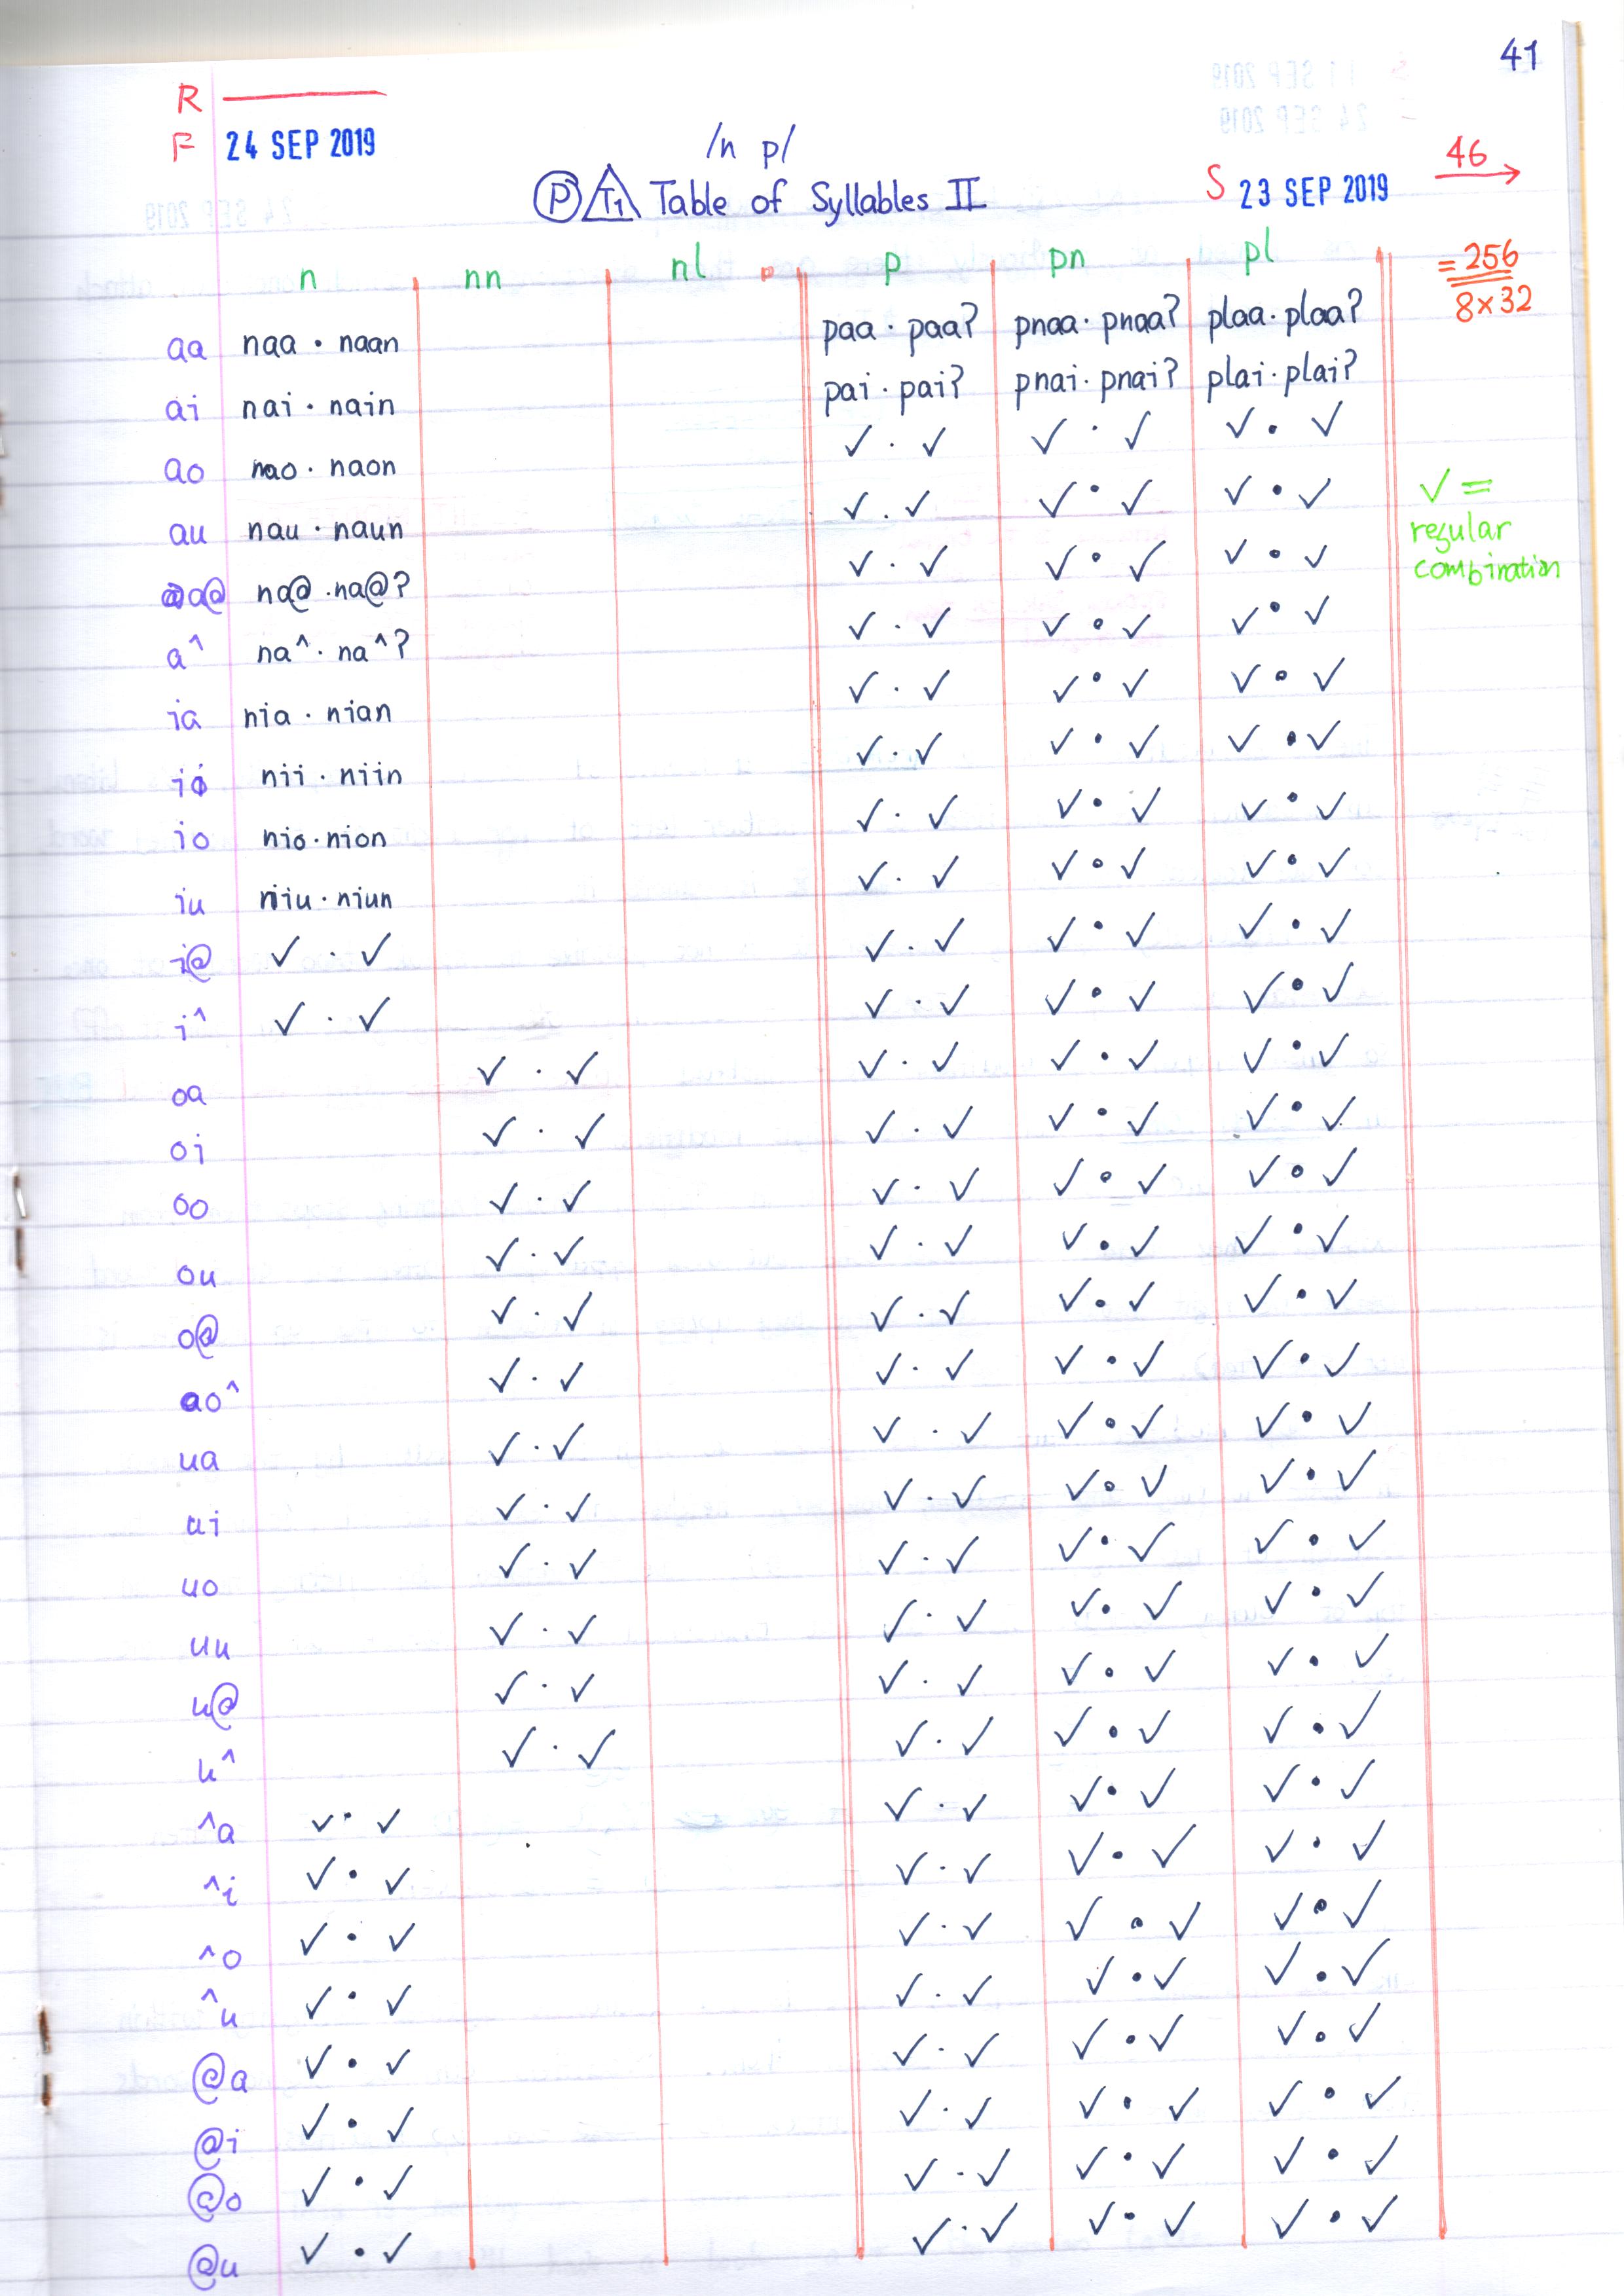 41
R
F 24 SEP 2019
/n p/
Ⓟ T1 Table of Syllables II
S 23 SEP 2019
46 →
n nn nl p pn pl
= 256
8×32
aa naa · naan paa · paa? pnaa · pnaa? plaa · plaa?
ai nai · nain pai · pai? pnai · pnai? plai · plai?
ao nao · naon ✓ · ✓ ✓ · ✓ ✓ · ✓
au nau · naun ✓ · ✓ ✓ · ✓ ✓ · ✓
✓ =
regular
combination
a@ na@ · na@? ✓ · ✓ ✓ · ✓ ✓ · ✓
a^ na^ · na^? ✓ · ✓ ✓ · ✓ ✓ · ✓
ia nia · nian ✓ · ✓ ✓ · ✓ ✓ · ✓
ii nii · niin ✓ · ✓ ✓ · ✓ ✓ · ✓
io nio · nion ✓ · ✓ ✓ · ✓ ✓ · ✓
iu niu · niun ✓ · ✓ ✓ · ✓ ✓ · ✓
i@ ✓ · ✓ ✓ · ✓ ✓ · ✓ ✓ · ✓
i^ ✓ · ✓ ✓ · ✓ ✓ · ✓ ✓ · ✓
oa ✓ · ✓ ✓ · ✓ ✓ · ✓ ✓ · ✓
oi ✓ · ✓ ✓ · ✓ ✓ · ✓ ✓ · ✓
oo ✓ · ✓ ✓ · ✓ ✓ · ✓ ✓ · ✓
ou ✓ · ✓ ✓ · ✓ ✓ · ✓ ✓ · ✓
o@ ✓ · ✓ ✓ · ✓ ✓ · ✓ ✓ · ✓
o^ ✓ · ✓ ✓ · ✓ ✓ · ✓ ✓ · ✓
ua ✓ · ✓ ✓ · ✓ ✓ · ✓ ✓ · ✓
ui ✓ · ✓ ✓ · ✓ ✓ · ✓ ✓ · ✓
uo ✓ · ✓ ✓ · ✓ ✓ · ✓ ✓ · ✓
uu ✓ · ✓ ✓ · ✓ ✓ · ✓ ✓ · ✓
u@ ✓ · ✓ ✓ · ✓ ✓ · ✓ ✓ · ✓
u^ ✓ · ✓ ✓ · ✓ ✓ · ✓ ✓ · ✓
^a ✓ · ✓ ✓ · ✓ ✓ · ✓ ✓ · ✓
^i ✓ · ✓ ✓ · ✓ ✓ · ✓ ✓ · ✓
^o ✓ · ✓ ✓ · ✓ ✓ · ✓ ✓ · ✓
^u ✓ · ✓ ✓ · ✓ ✓ · ✓ ✓ · ✓
@a ✓ · ✓ ✓ · ✓ ✓ · ✓ ✓ · ✓
@i ✓ · ✓ ✓ · ✓ ✓ · ✓ ✓ · ✓
@o ✓ · ✓ ✓ · ✓ ✓ · ✓ ✓ · ✓
@u ✓ · ✓ ✓ · ✓ ✓ · ✓ ✓ · ✓